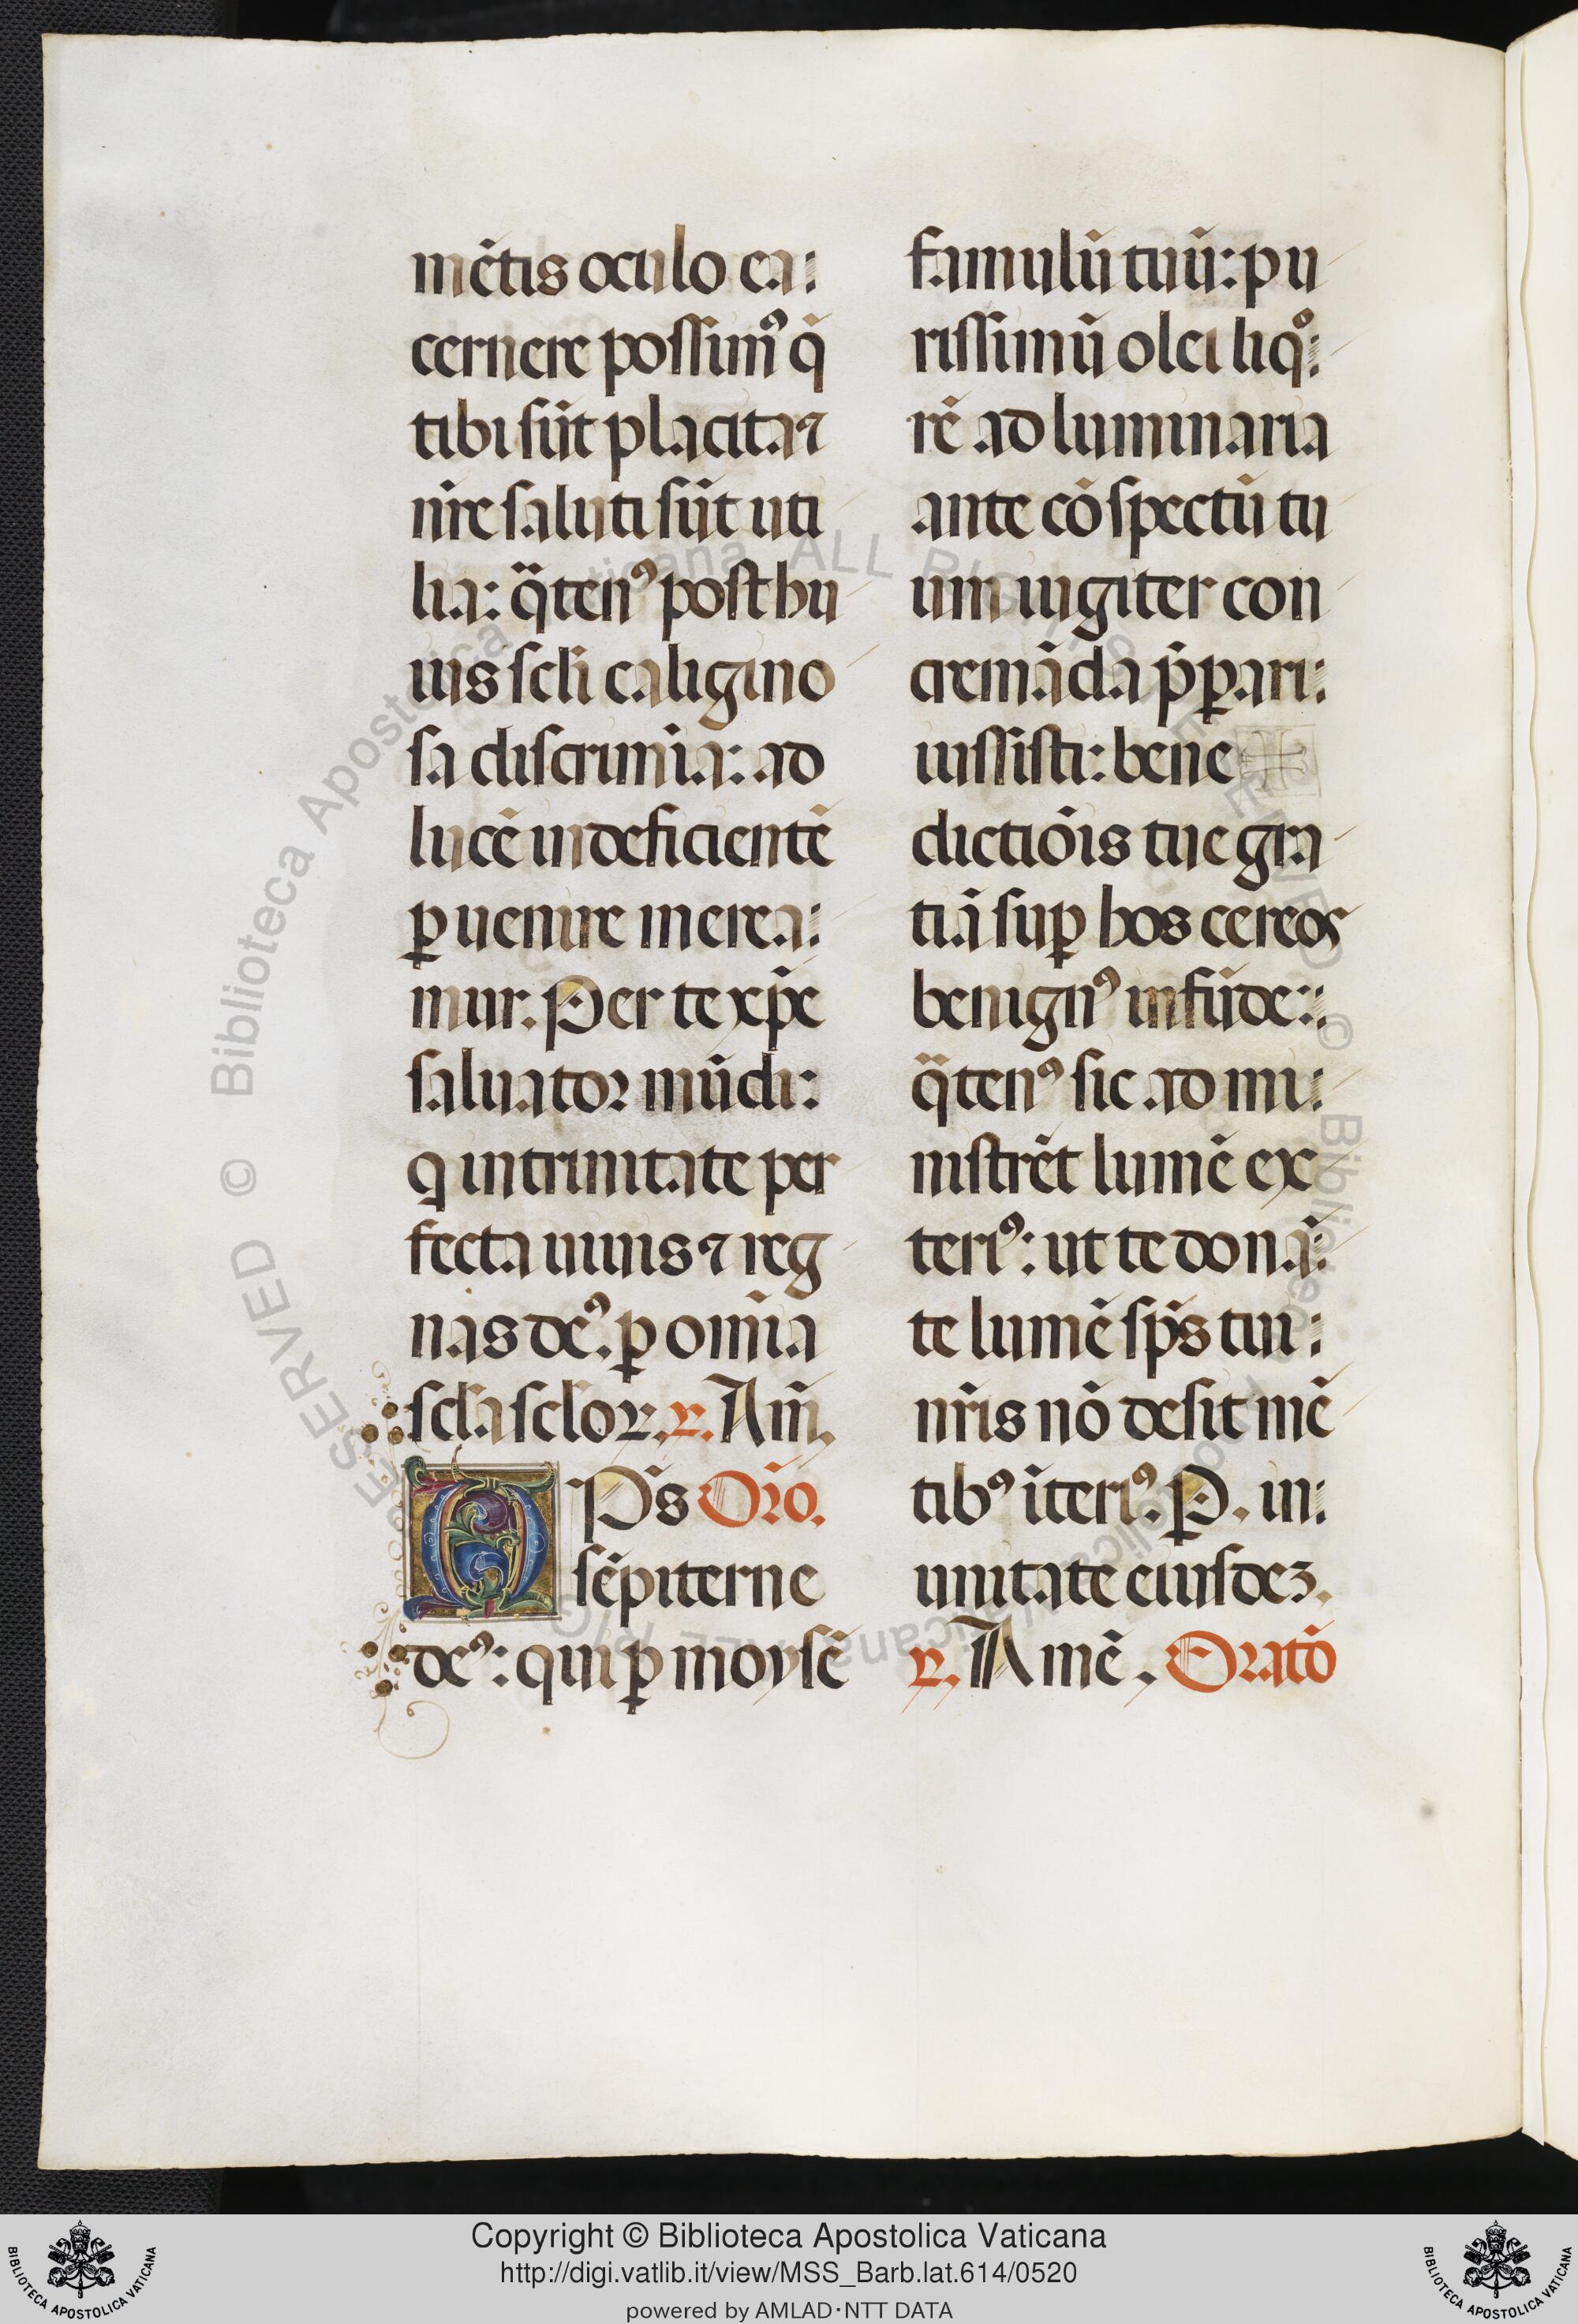 mẽtis oculo ea:
cernere possimꝰ q̃
tibi sũt placita ⁊
nr̃e saluti sũt uti
lia: q̃tenꝰ post hu
uis scl̃i caligino
sa discrimĩa: ad
lucẽ indeficientẽ
ꝑuenire merea:
mur. Per te xp̃e
saluator mũdi:
q̃ in trinitate per
fecta uiuis ⁊ reg
nas deꝰ. ꝑ om̃ia
scl̃a scl̃oꝝ. ℟. Am̃.
O Ps̃ Or̃o.
sẽpiterne
deꝰ: qui ꝑ moysẽ
famulũ tuũ: pu
rissimũ olei liqͦ:
rẽ ad luminaria
ante cõspectũ tu
um iugiter con
cremãda p̃ꝑari:
iussisti: bene ✠
dictiõis tue gra
tiã suꝑ hos cereos
benignꝰ infũde:
q̃tenꝰ sic admi:
nistrẽt lumẽ ex
teriꝰ: ut te donã:
te lumẽ sp̃s tui:
nr̃is nõ desit mẽ
tibꝰ ĩteriꝰ. P. in:
unitate eiusdeꝫ.
℟. Amẽ. Oratõ
Copyright © Biblioteca Apostolica Vaticana
http://digi.vatlib.it/view/MSS_Barb.lat.614/0520
powered by AMLAD·NTT DATA